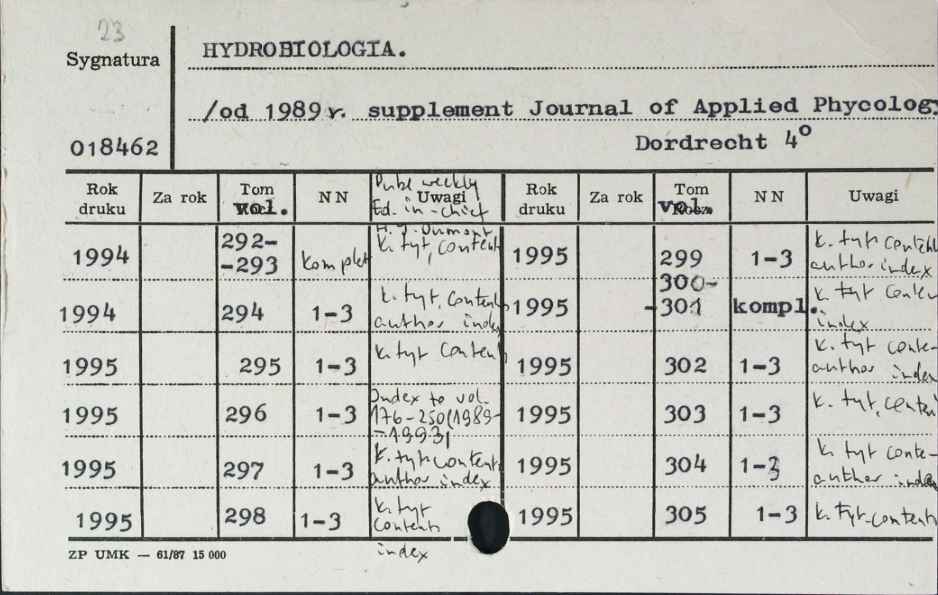 23
Sygnatura
HYDROBIOLOGIA.
/od 1989 r. supplement Journal of Applied Phycology
018462
Dordrecht 4°
Rok druku Za rok Tom vol. NN Uwagi Rok druku Za rok Tom vol. NN Uwagi
Publ weekly
Ed. in-chief
H. J. Dumont
1994 292--293 komplet k. tyt, content 1995 299 1-3 k. tyt content author index
1994 294 1-3 k. tyt, content author index 1995 300--301 kompl. k tyt conten index
1995 295 1-3 k. tyt content 1995 302 1-3 k. tyt conte- author index
1995 296 1-3 Index to vol. 176-250(1989--1993) 1995 303 1-3 k. tyt, content
1995 297 1-3 k. tyt content author index 1995 304 1-3 k. tyt conte- author index
1995 298 1-3 k. tyt contents index 1995 305 1-3 k. tyt-contents
ZP UMK — 61/87 15 000